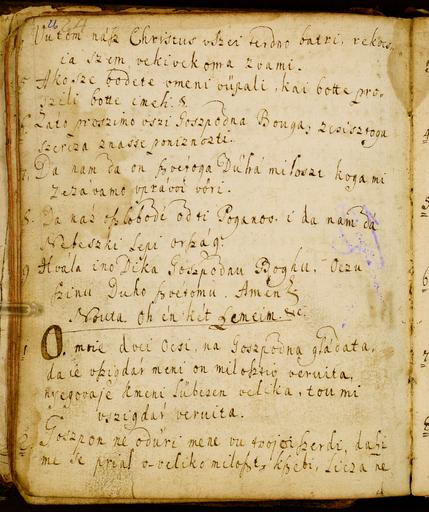 Vu tom nasz Christus vszei terdno batri, rekocs,
ia szem, vekivek opra zvami.
Ako sze bodete vmeni vüpali, kai botte pro-
szili botte imeli. &.
Zato proszimo vszi Goszpodna Bouga, zcsisztoga
szercza znasse poniznoszti.
7. Da nam da on szvetoga Dühá miloszt koga mi
zezavamo vprávoi vöri.
8. Da nasz oszlobodi od ti Poganov. i da nam da
Nebeszki Lepi orszag.
9 Hvála ino Dika Goszpodnu Boghu. Oczu
szinu Duho szvetomu. Amen
Nouta. Oh én két szemeim. &c.
1 O. moie dvei Ocsi, na Goszpodna gládata,
da ie vszigdár meni on milosztiv veruita,
nyegovaie kmeni lübezen velika, tou mi
vszigdár veruita.
2 Goszpon ne odüri mene vu tvojoi szerdi, da bi
me ie prial v-veliko miloszt, k szebi, licza ne